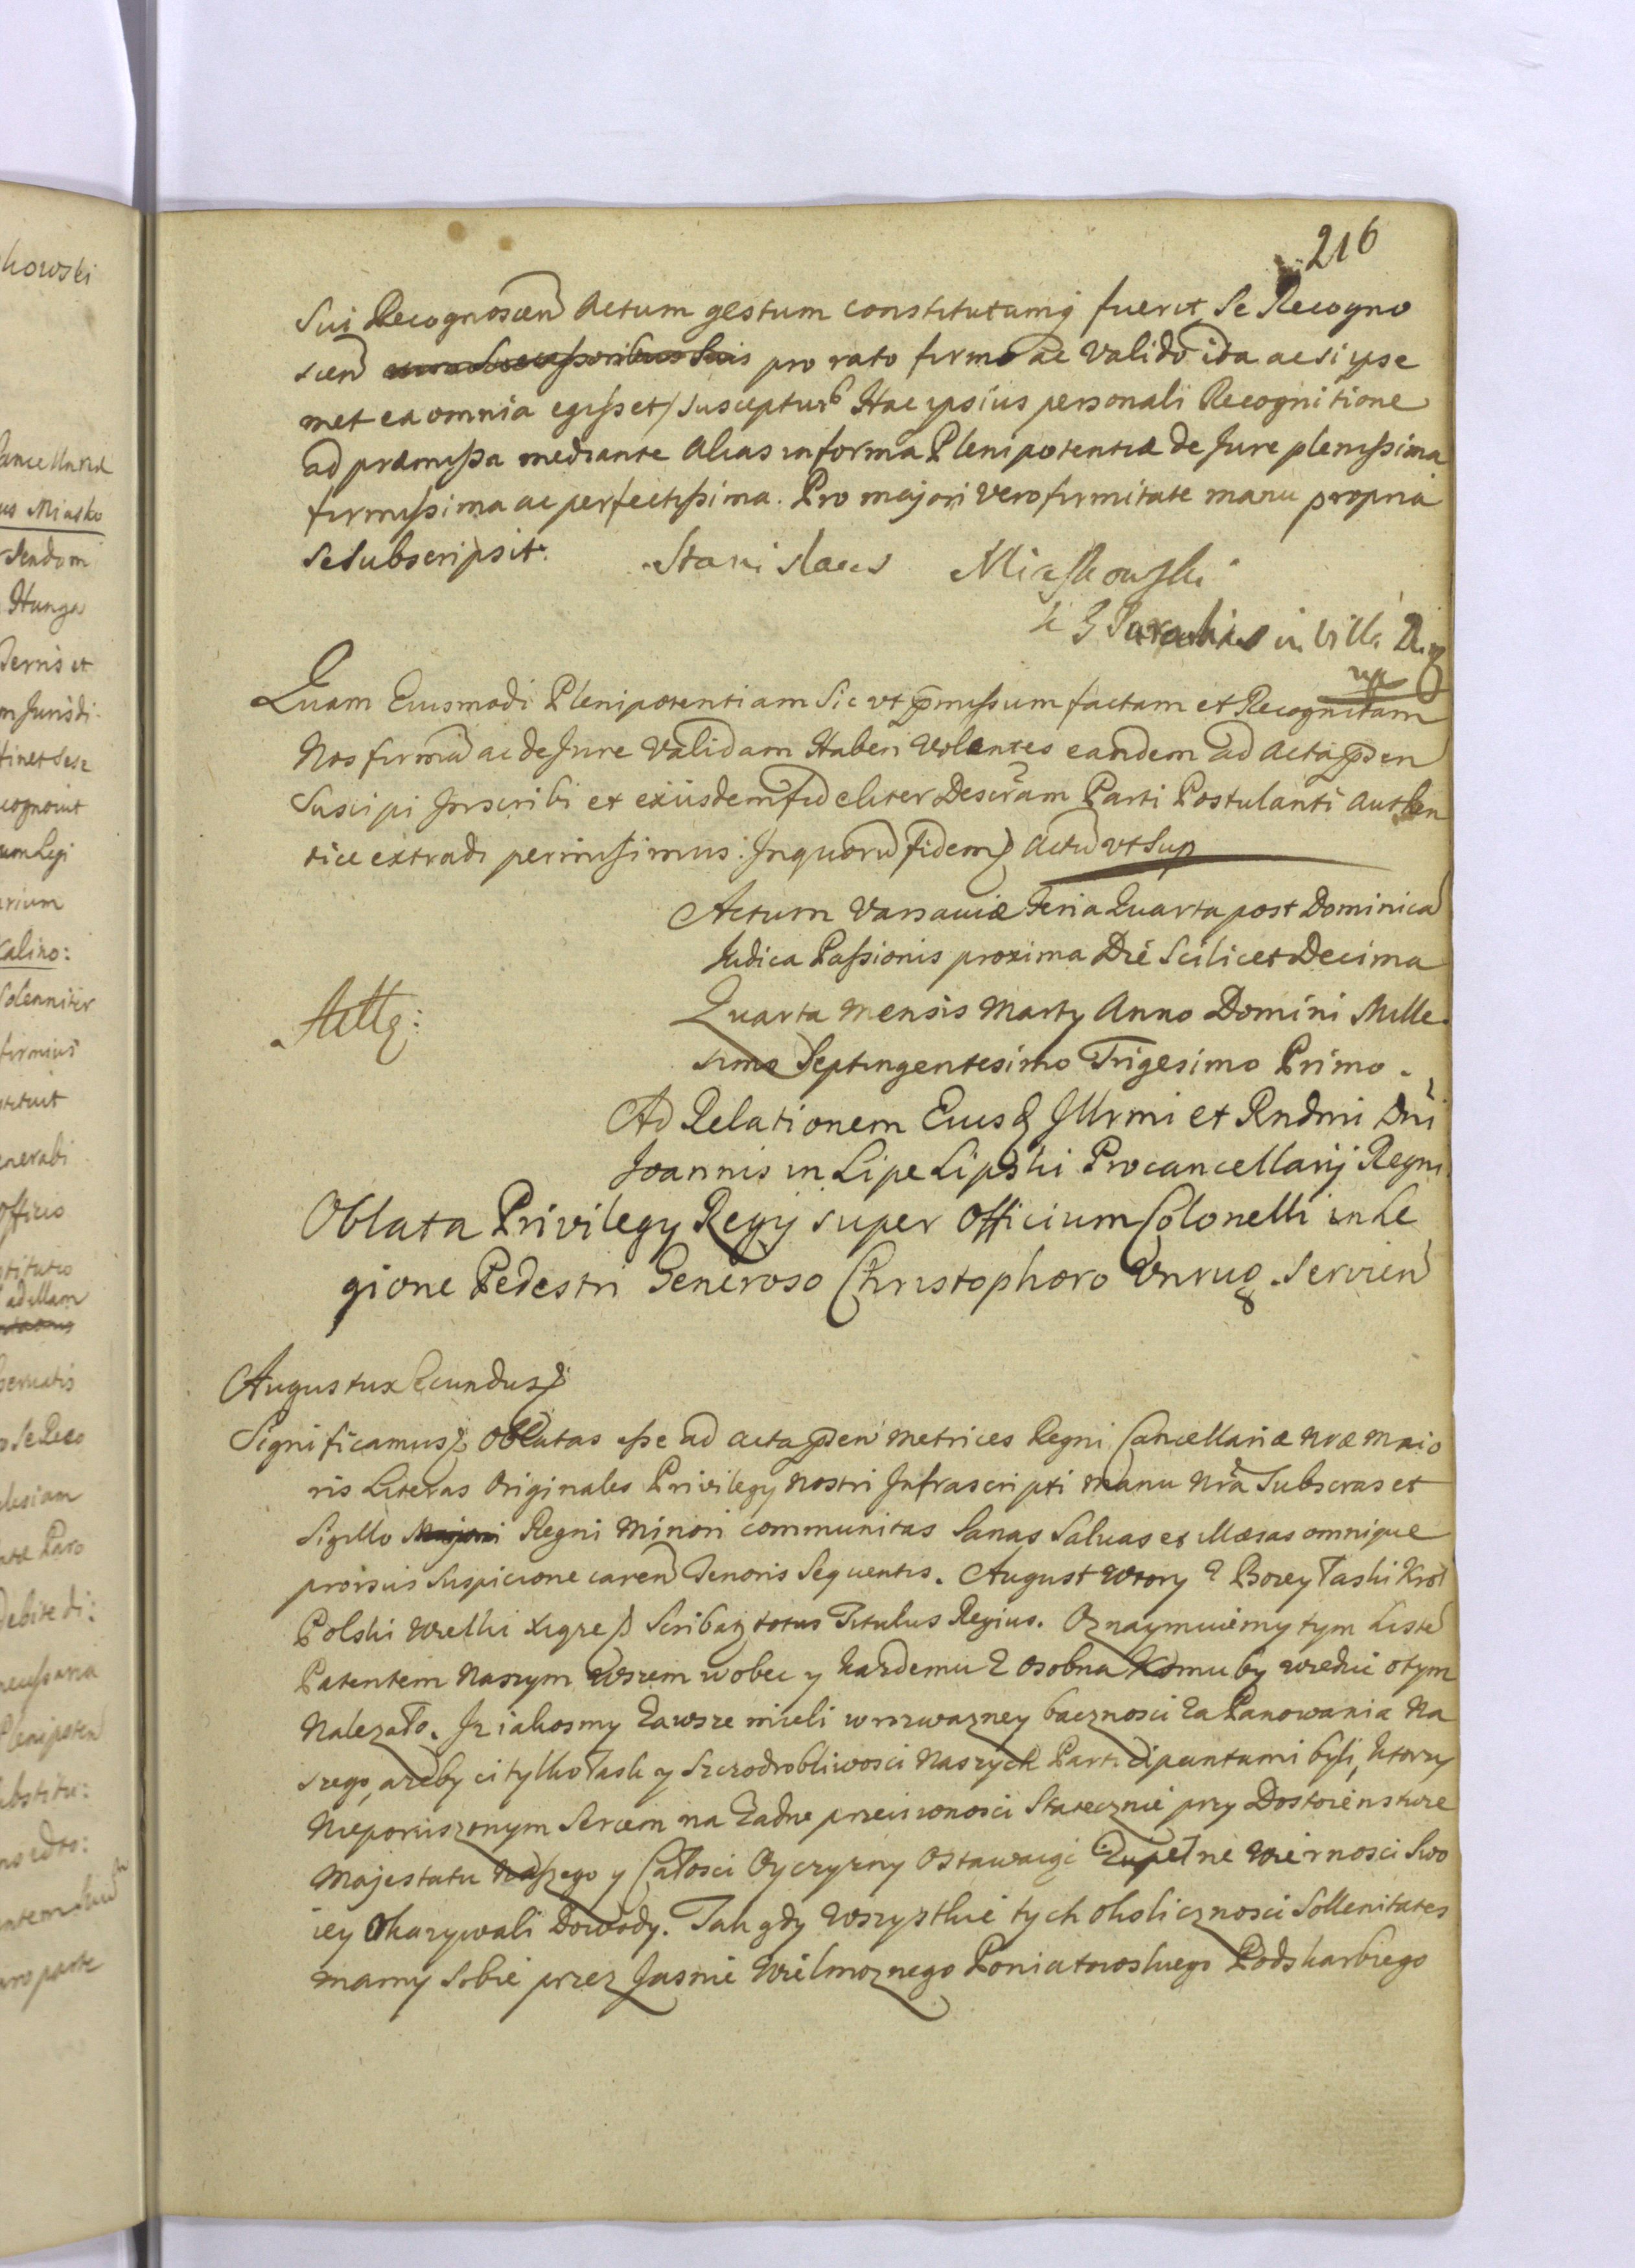 216
Sui Recognoscen Actum gestum constitutumq fuerit, Se Recogno
scen pro rato firmo ac valido ida ac si ipse
met ea omnia egisset/suscepturs Hac ipsius personali Recognitione
ad præmissa mediante Alias in forma Plenipotentiæ de Jure plenissima
firmissima ac perfectissima. Pro majori vero firmitate manu propria
se subscripsit.
Stanislaus Miaskowski
in villa
mp
Quam Eiusmodi Plenipotentiam Sic vt pmissum factam et Recognitam
Nos firma ac de Jure Validam Haberi Volentes eandem ad Acta pden
Suscipi Inscribi et exiisdem fideliter Descram Parti Postulanti Authen
tice extradi permisimus. In quorũ fidem Actũ vt Sup
Actum Varsaviæ Feria Quarta post Dominica
Judica Passionis proxima Die Scilicet Decima
Quarta Mensis Marty Anno Domini Mille
simo Septingentesimo Trigesimo Primo.
Ad Relationem Eiusd Illrmi et Rndmi Dni
Joannis in Lipe Lipski Procancellarij Regni.
Oblata Privilegy Regij super Officium Colonelli in Le
gione Pedestri Generoso Christophoro Vnrug Servien
Augustus Secundus
Significamus Oblatas esse ad acta pden Metrices Regni Cancellariæ Nræ Maio
ris Literas Originales Privilegy Nostri Infrascripti Manu Nra Subscras et
Sigillo Majori Regni Minori communitas Sanas Salvas et illæsas omnique
prorsus Suspicione caren Tenoris Sequentis. August Wtory z Bozey łaski Krol
Polski Wielki Xiąze Scribaz totus Titulus Regius. Oznaymuiemy tym Liste
Patentem Naszym Wszem wobec y kazdemu z osobna komu by wiedzic o tym
Nalezało. Iz iakosmy Zawsze mieli w rozwazney bacznosci za Panowania Na
szego, azeby ci tylko łask y Szczodrobliwosci Naszych Participantami byli, ktorzy
Nieporuszonym Sercem na zadne przeciwnosci Statecznie przy Dostoienstwie
Majestatu Naszego y Całosci Oyczyzny Ostawaiąc Zupełne Wiernosci Swo
iey Okazywali Dowody. Tak gdy Wszystkie tych okolicznosci Sollenitates
mamy Sobie przez Jasnie Wielmoznego Poniatowskiego Podskarbiego